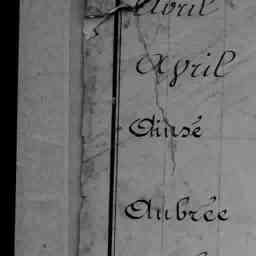 Avril
Ayril
Ainsé
Aubrée